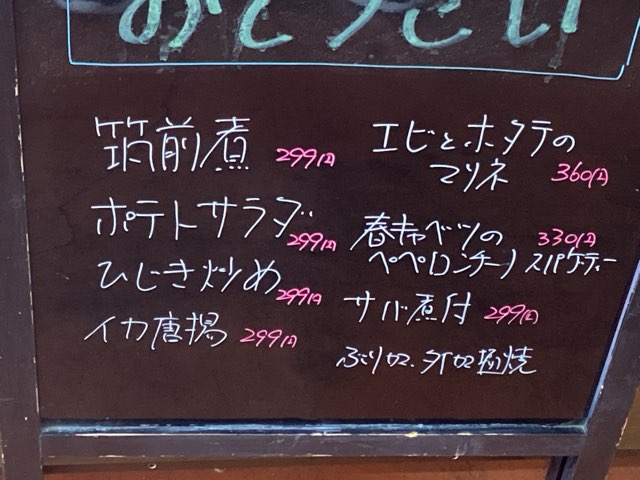 おそうざい
筑前煮 299円
ポテトサラダ 299円
ひじき炒め 299円
イカ唐揚 299円
エビとホタテの
マリネ 360円
春キャベツの 330円
ペペロンチーノスパゲティー
サバ煮付 299円
ぶりカマ、タイカマ塩焼